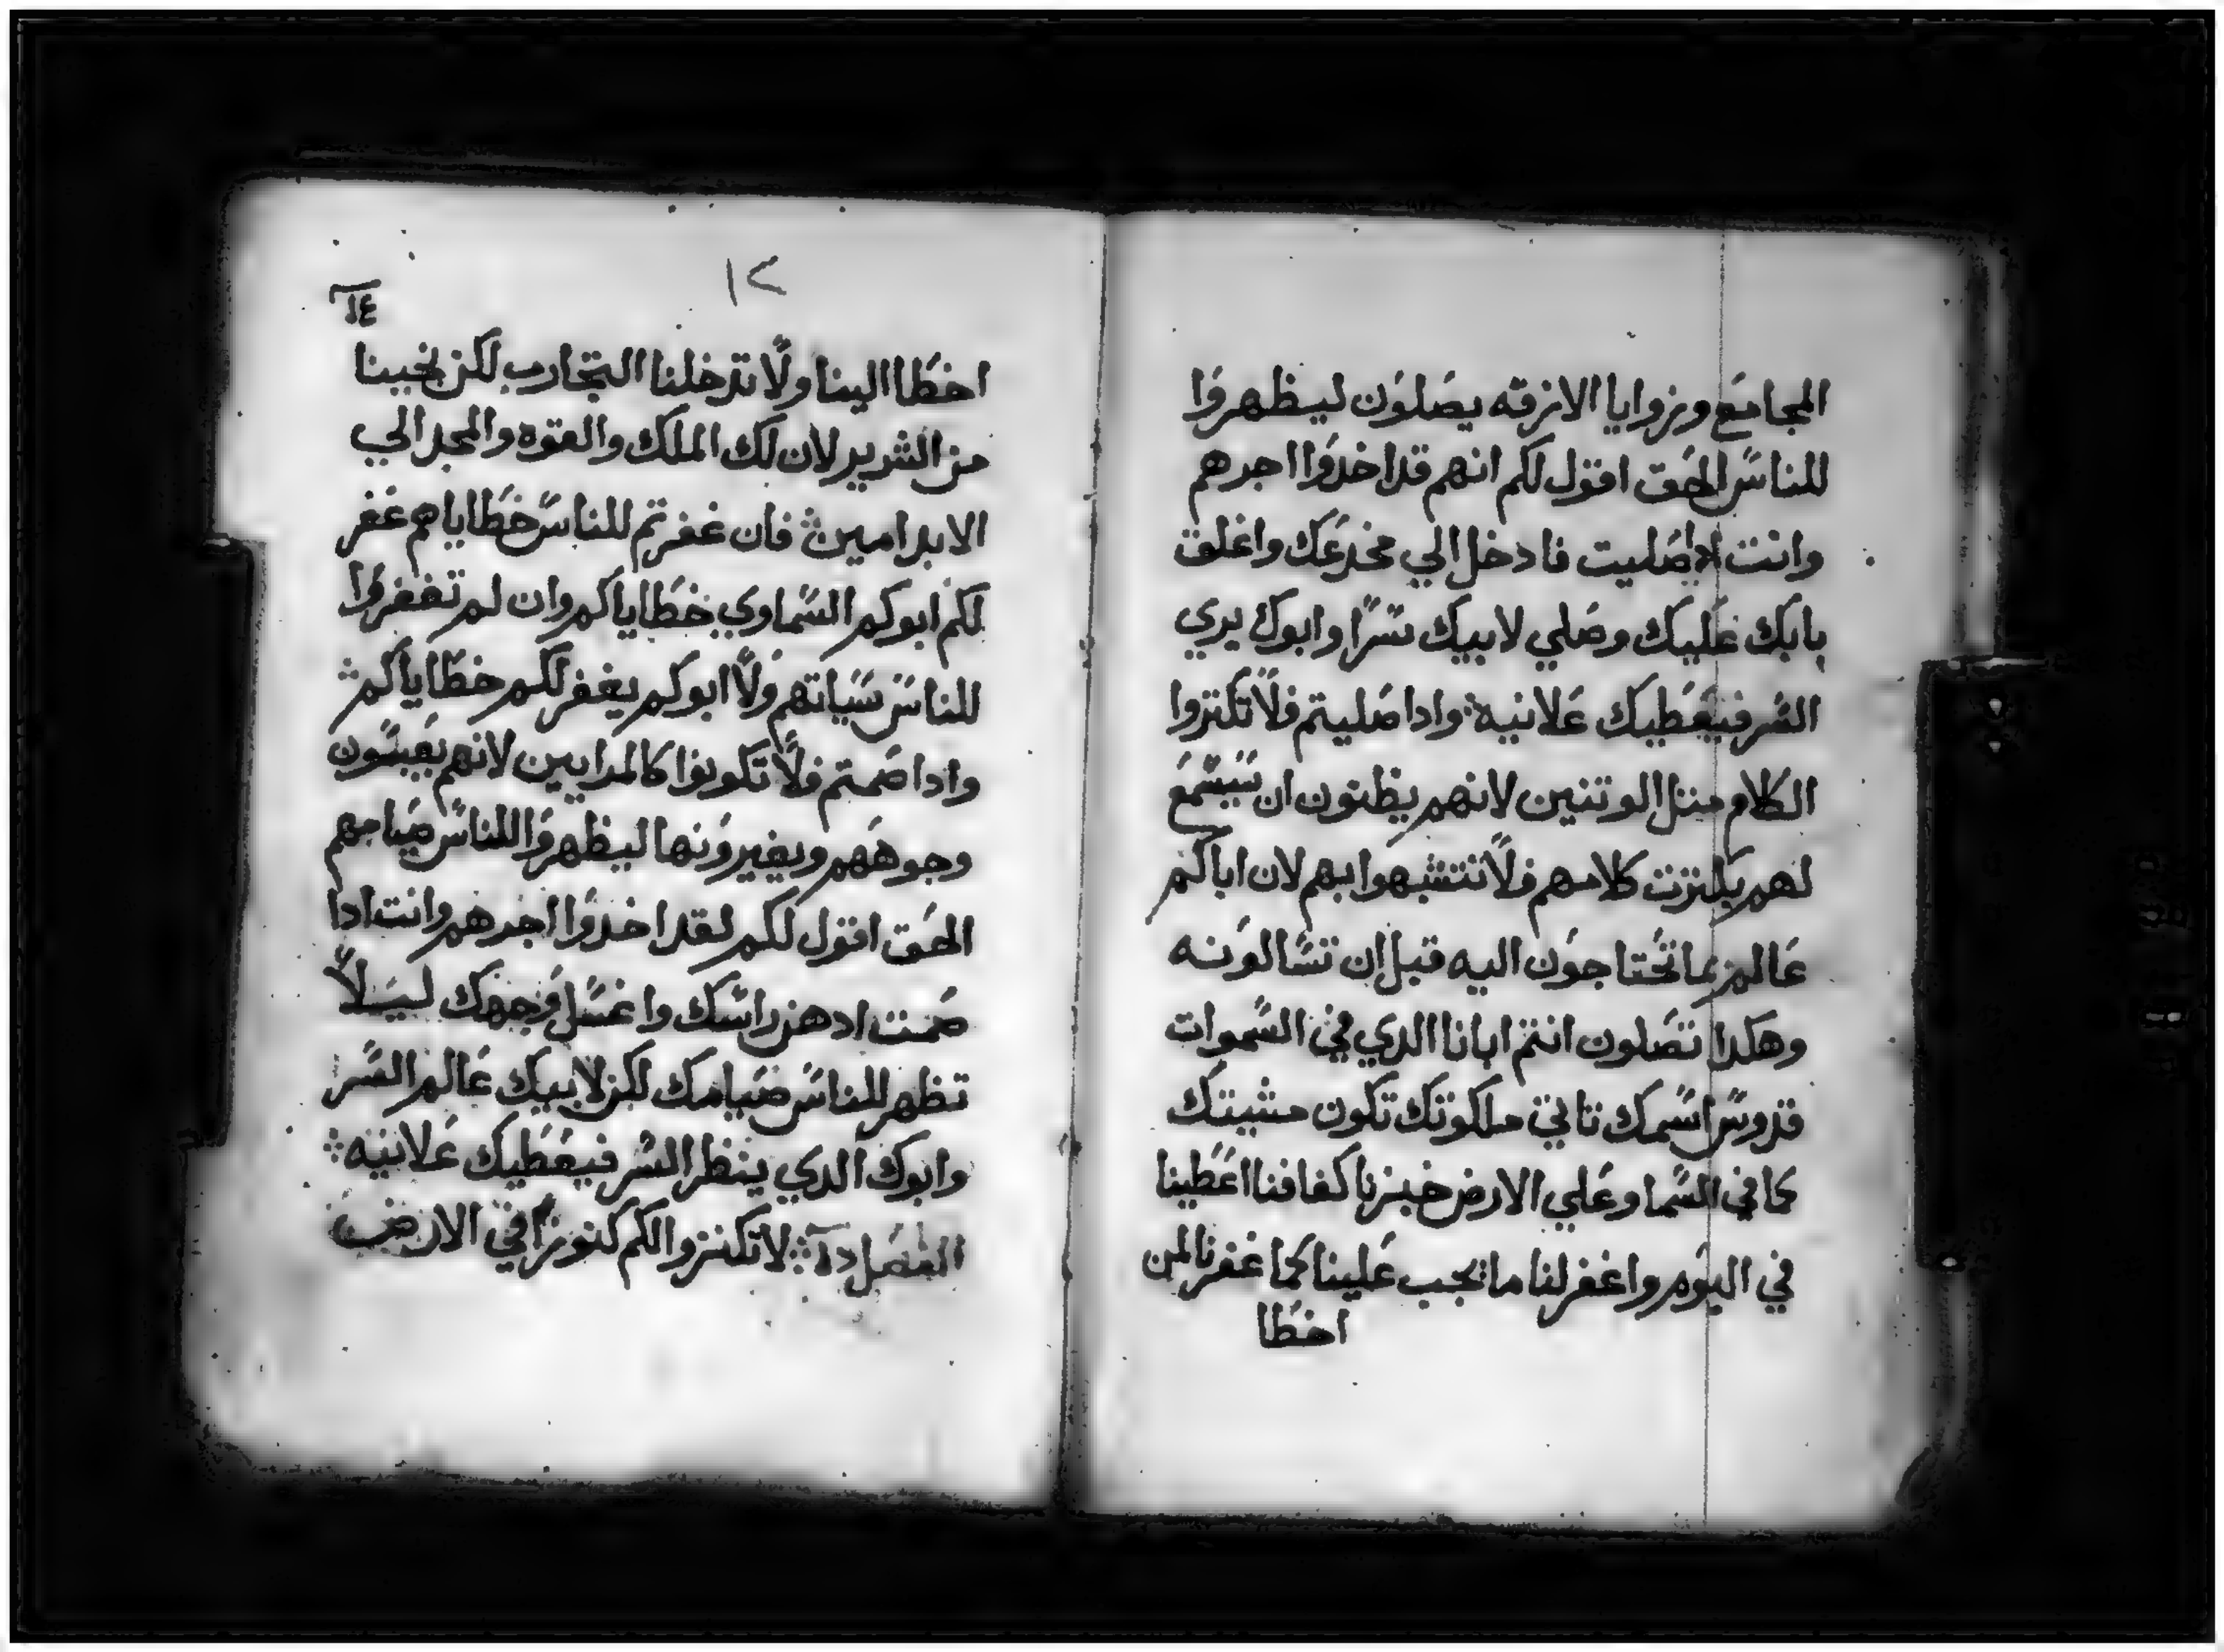 المجامع وزوايا الازقه يصلون ليظهروا
للناس الحق اقول لكم انهم قد اخدوا اجرهم
وانت ادا صليت فادخل الي مخدعك واغلق
بابك عليك وصلي لابيك سرا وابوك يري
السر فيعطيك علانيه وادا صليتم فلا تكتروا
الكلام متل الوتنين لانهم يظنون ان سيسمع
لهم بكترت كلامهم فلا تتشبهوا بهم لان اباكم
عالم بما تحتاجون اليه قبل ان تسالونه
وهكدا تصلون انتم ابانا الدي في السموات
قدوس اسمك تاتي ملكوتك تكون مشيتك
كما في السما وعلي الارض خبزنا كفافنا اعطينا
في اليوم واغفر لنا ما يجب علينا كما غفرنا لمن
اخطا
١٢
١٤
اخطا الينا ولا تدخلنا التجارب لكن نجينا
من الشرير لان لك الملك والقوه والمجد الي
الابد امين فان غفرتم للناس خطاياهم غفر
لكم ابوكم السماوي خطاياكم وان لم تغفروا
للناس سياتهم ولا ابوكم يغفر لكم خطاياكم
وادا صمتم فلا تكونوا كالمرايين لانهم يعبسون
وجوههم ويغيرونها ليظهروا للناس صيامهم
الحق اقول لكم لقد اخدوا اجرهم وانت ادا
صمت ادهن راسك واغسل وجهك ليلا
تظهر للناس صيامك لكن لابيك عالم السر
وابوك الدي ينظر السر فيعطيك علانيه
الفصل لا تكنزوا لكم كنوزا في الارض